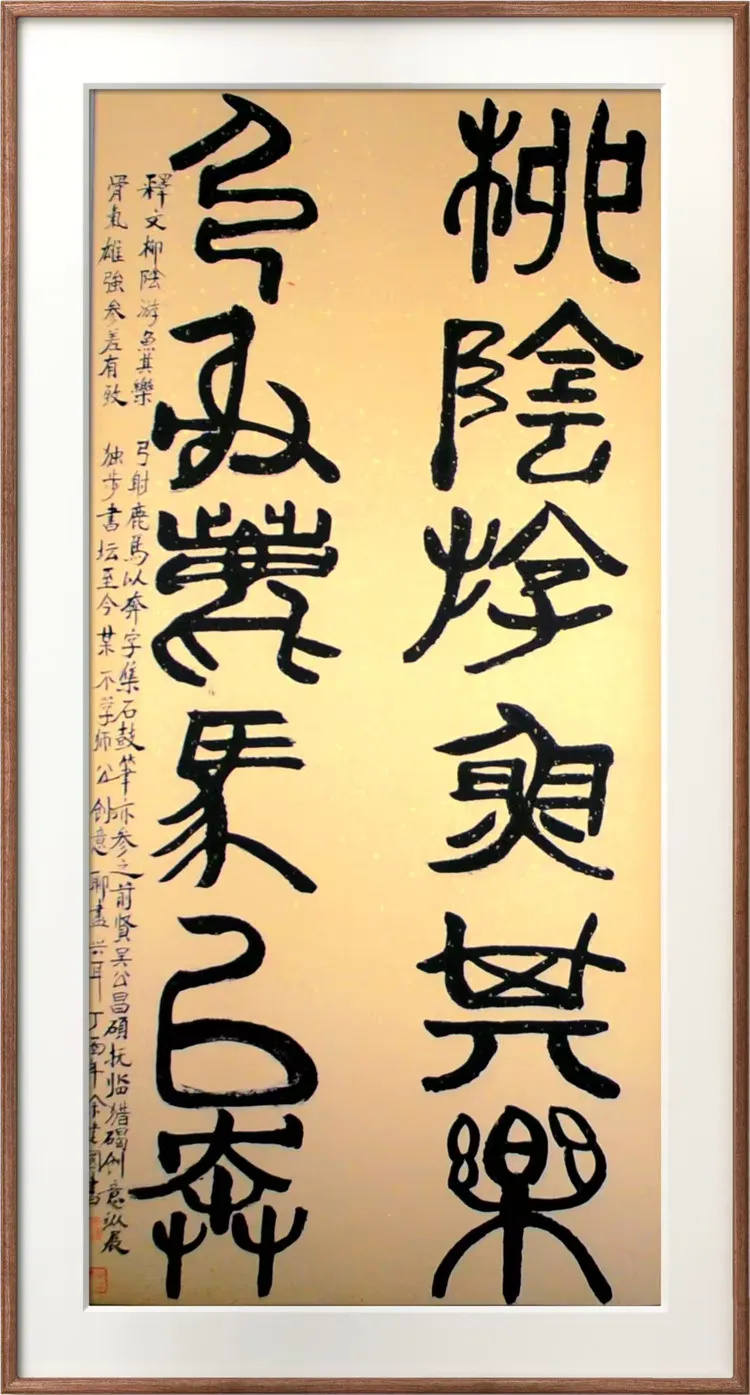 柳陰斿魚其樂
弓射鹿馬㠯奔
釋文柳陰游魚其樂 弓射鹿馬以奔字集石鼓筆亦参之前賢吴公昌碩抚临猎碣创意纵展
骨氣雄強参差有致 独步書坛至今某不学師公创意聊盡兴耳丁酉年余建國書